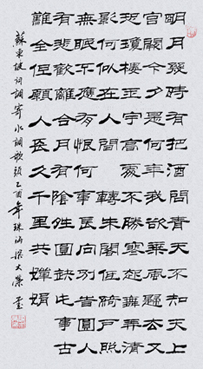 明月幾時有把酒問青天不知天上
宮闕今夕是何年我欲乘風歸去又
恐瓊樓玉宇高處不勝寒起舞弄清
影何似在人間轉朱閣低綺戶照
無眠不應有恨何事長向別時圓人
有悲歡離合月有陰晴圓缺此事古
難全但願人長久千里共嬋娟
蘇東坡詞調寄水調歌頭乙酉年珠海梁大書